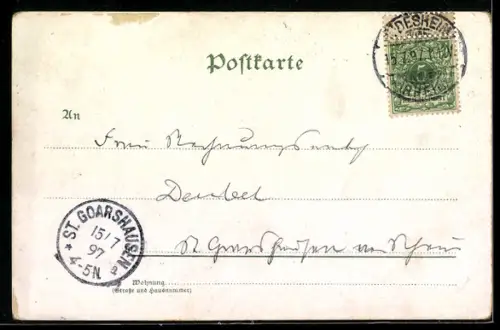 Postkarte
DESHEIM
15.7.97.
RHEIN
An
Frau Rechnungsrath
St Goarshausen am Rhein
ST. GOARSHAUSEN
15/7
97
* 4-5N *
Wohnung
(Straße und Hausnummer)